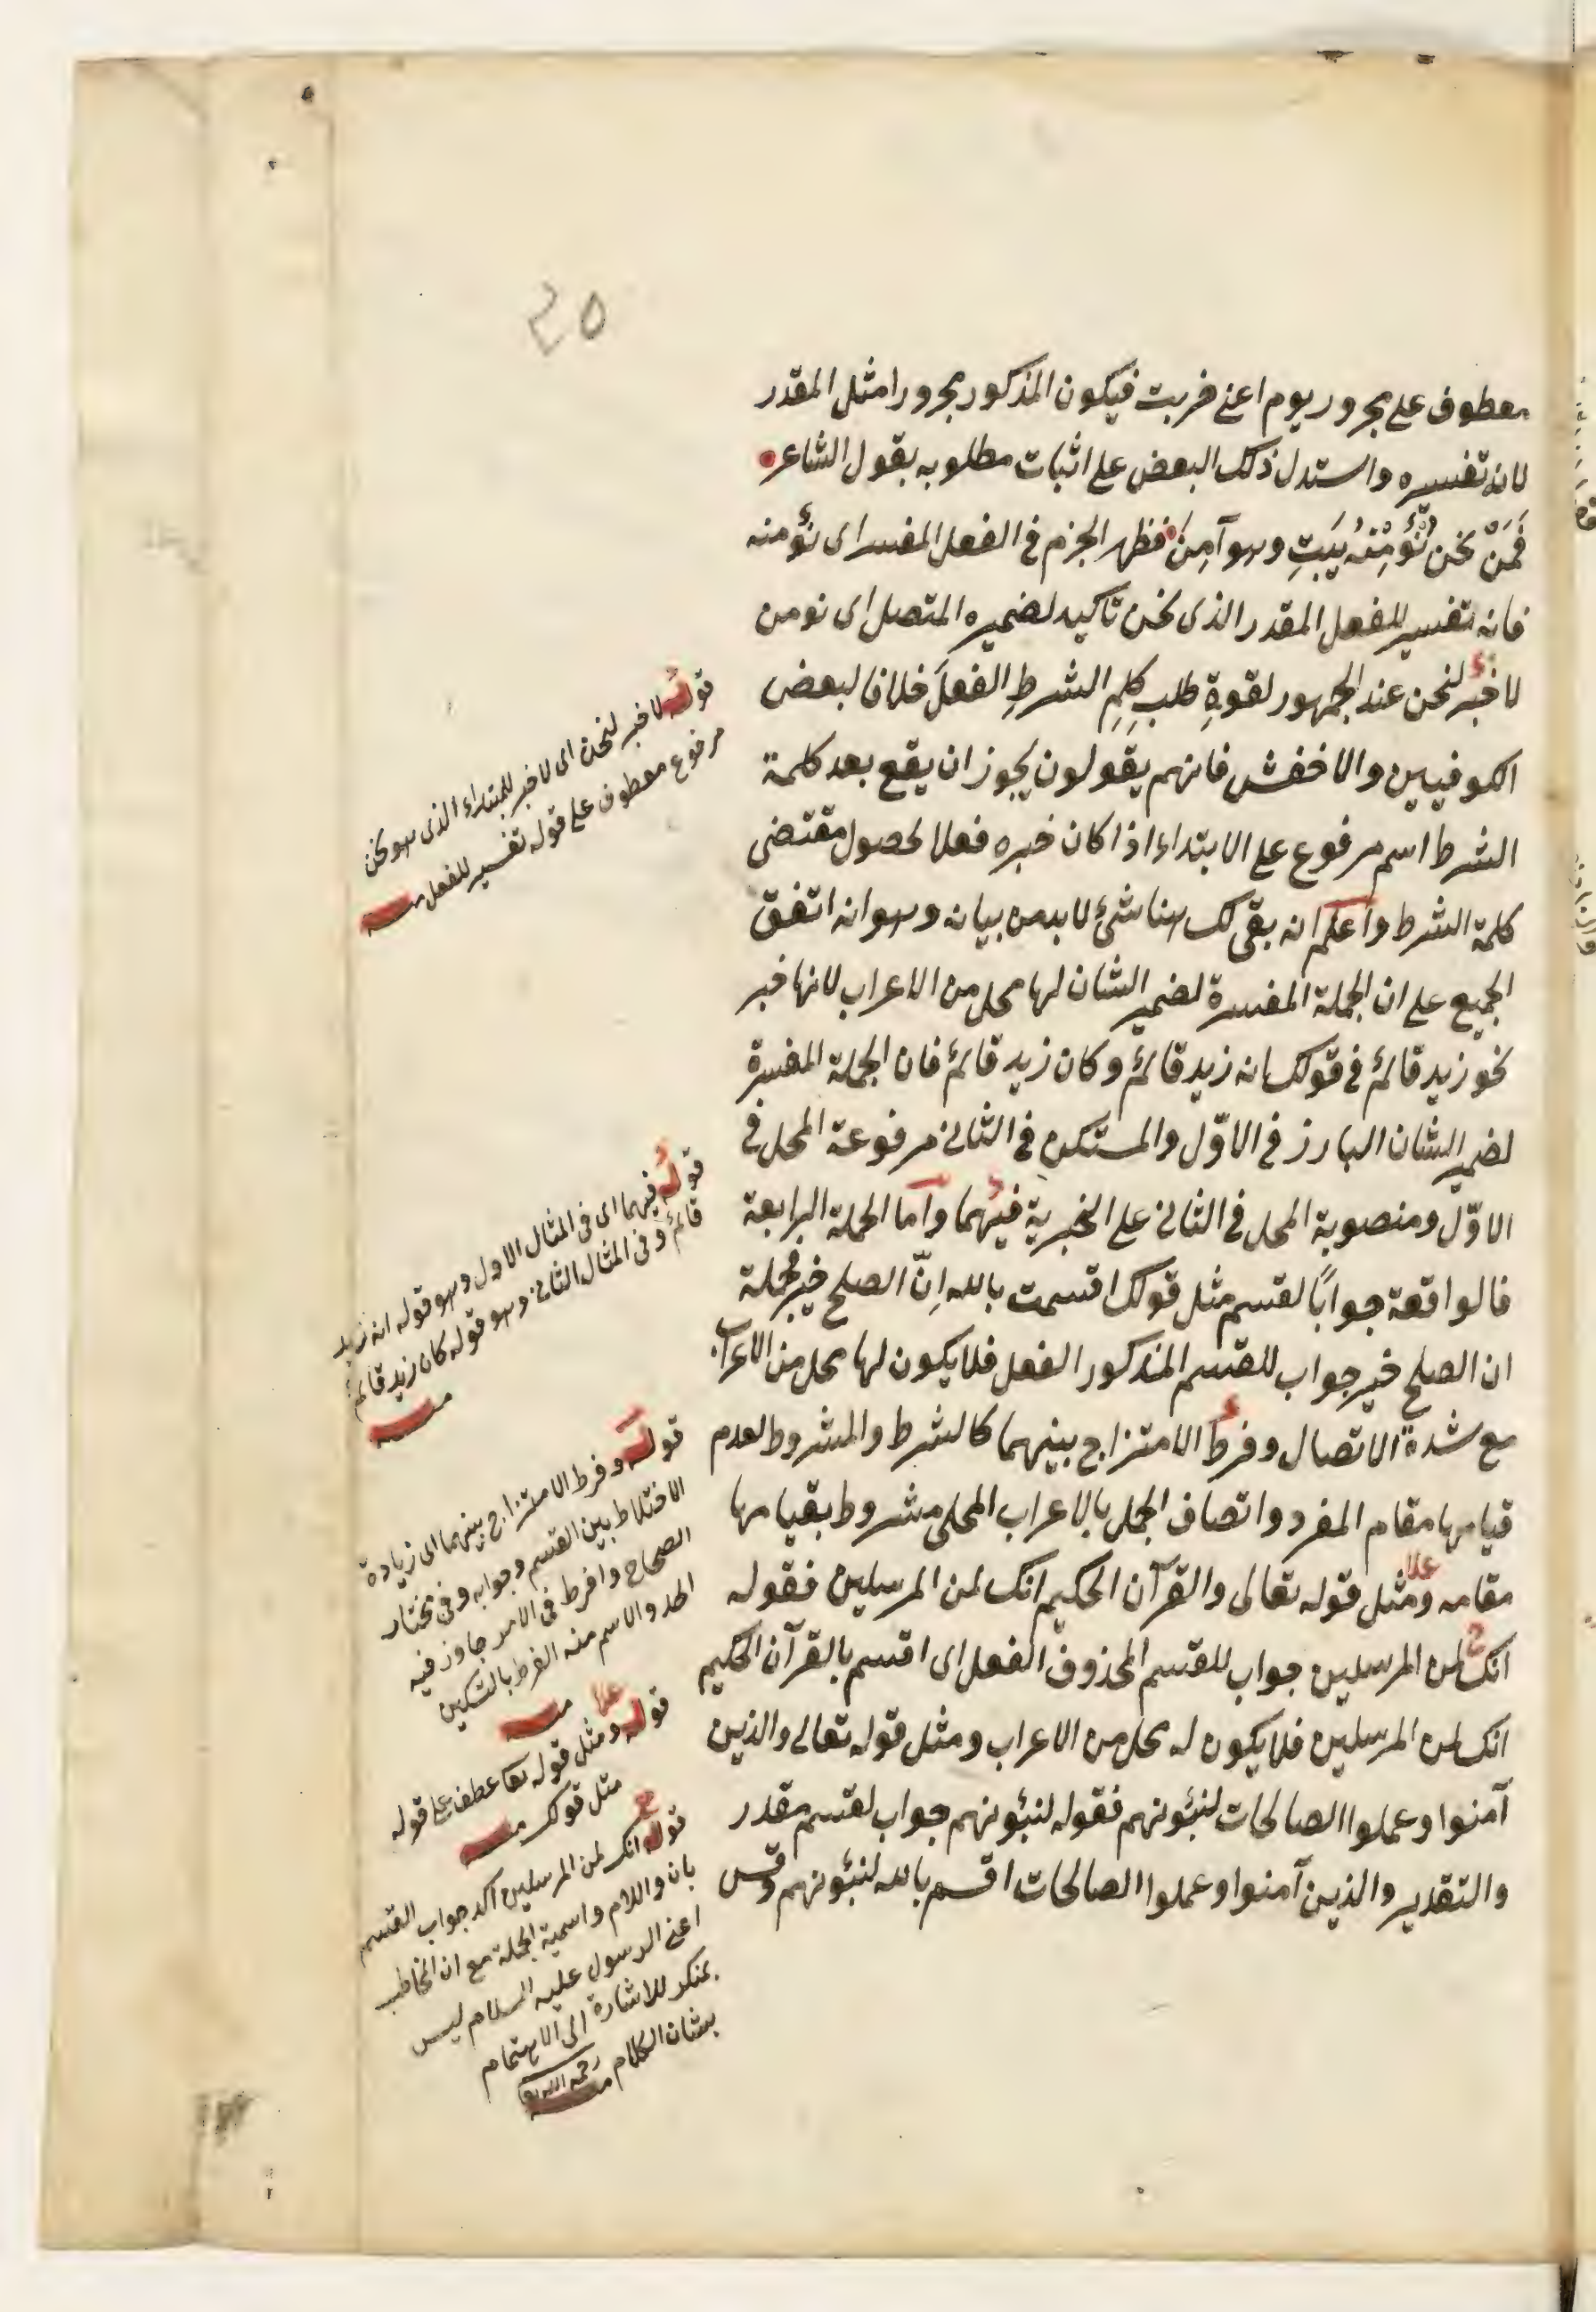 ٢٥
معطوف على مجرور يوم اعنى قربت فيكون المذكور مجرورا مثل المقدر
لانه تفسيره واستدل ذلك البعض على اثبات مطلوبه بقول الشاعر
فَمَنْ نحن نُؤْمِنْهُ يَبِتِ وهو آمِنٌ فظهر الجزم فى الفعل المفسر اى نؤمنه
فانه تفسير للفعل المقدر الذى نحن تاكيد لضميره المتصل اى نومن
لا خبر لنحن عند الجمهور لقوةِ طلب كلِمِ الشرطِ الفعلَ خلافا لبعض
الكوفيين والاخفش فانهم يقولون يجوز ان يقع بعد كلمة
الشرط اسم مرفوع على الابتداء اذا كان خبره فعلا لحصول مقتضى
كلمة الشرط واعلم انه بقى لك هنا شئ لا بد من بيانه وهو انه اتفق
الجميع على ان الجملة المفسرة لضمير الشان لها محل من الاعراب لانها خبر
نحو زيد قائم فى قولك انه زيد قائم وكان زيد قائم فان الجملة المفسرة
لضمير الشان البارز فى الاوّل والمستكن فى الثانى مرفوعة المحل فى
الاوّل ومنصوبة المحل فى الثانى على الخبرية فيهما واما الجملة الرابعة
فالواقعة جوابًا لقسم مثل قولك اقسمت بالله اِنّ الصلح خير فجملة
ان الصلح خير جواب للقسم المذكور الفعل فلا يكون لها محل من الاعراب
مع شدة الاتصال وفرط الامتزاج بينهما كالشرط والمشروط لعدم
قيامها مقام المفرد واتصاف الجمل بالاعراب المحلى مشروط بقيامها
مقامه ومثل قوله تعالى والقرآن الحكيم انك لمن المرسلين فقوله
انك لمن المرسلين جواب للقسم المحذوف الفعل اى اقسم بالقرآن الحكيم
انك لمن المرسلين فلا يكون له محل من الاعراب ومثل قوله تعالى والذين
آمنوا وعملوا الصالحات لنبئونهم فقوله لنبئونهم جواب لقسم مقدر
والتقدير والذين آمنوا وعملوا الصالحات اقسم بالله لنبئونهم وقس
قوله لا خبر لنحن اى لا خبر للمبتداء الذى هو نحن
مرفوع معطوف على قوله تفسير للفعل منه
قوله فيهما اى فى المثال الاول وهو قوله انه زيد
قائم وفى المثال الثانى وهو قوله كان زيد قائم
منه
قوله وفرط الامتزاج بينهما اى زيادة
الاختلاط بين القسم وجوابه وفى مختار
الصحاح وافرط فى الامر جاوز فيه
الحد والاسم منه الفرط بالتسكين
منه
قوله ومثل قوله تعا عطف على قوله
مثل قولك منه
قوله انك لمن المرسلين اكد جواب القسم
بان واللام واسمية الجملة مع ان المخاطب
اعنى الرسول عليه السلام ليس
بمنكر للاشارة الى الاهتمام
بشان الكلام منه
رحمه الله تعا